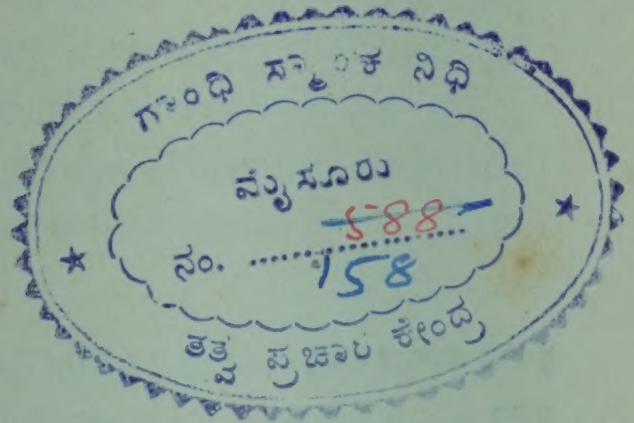 ಗಾಂಧಿ ಸ್ಮಾರಕ ನಿಧಿ
ಮೈಸೂರು
588
ನಂ. ..................
158
ತತ್ವ ಪ್ರಚಾರ ಕೇಂದ್ರ